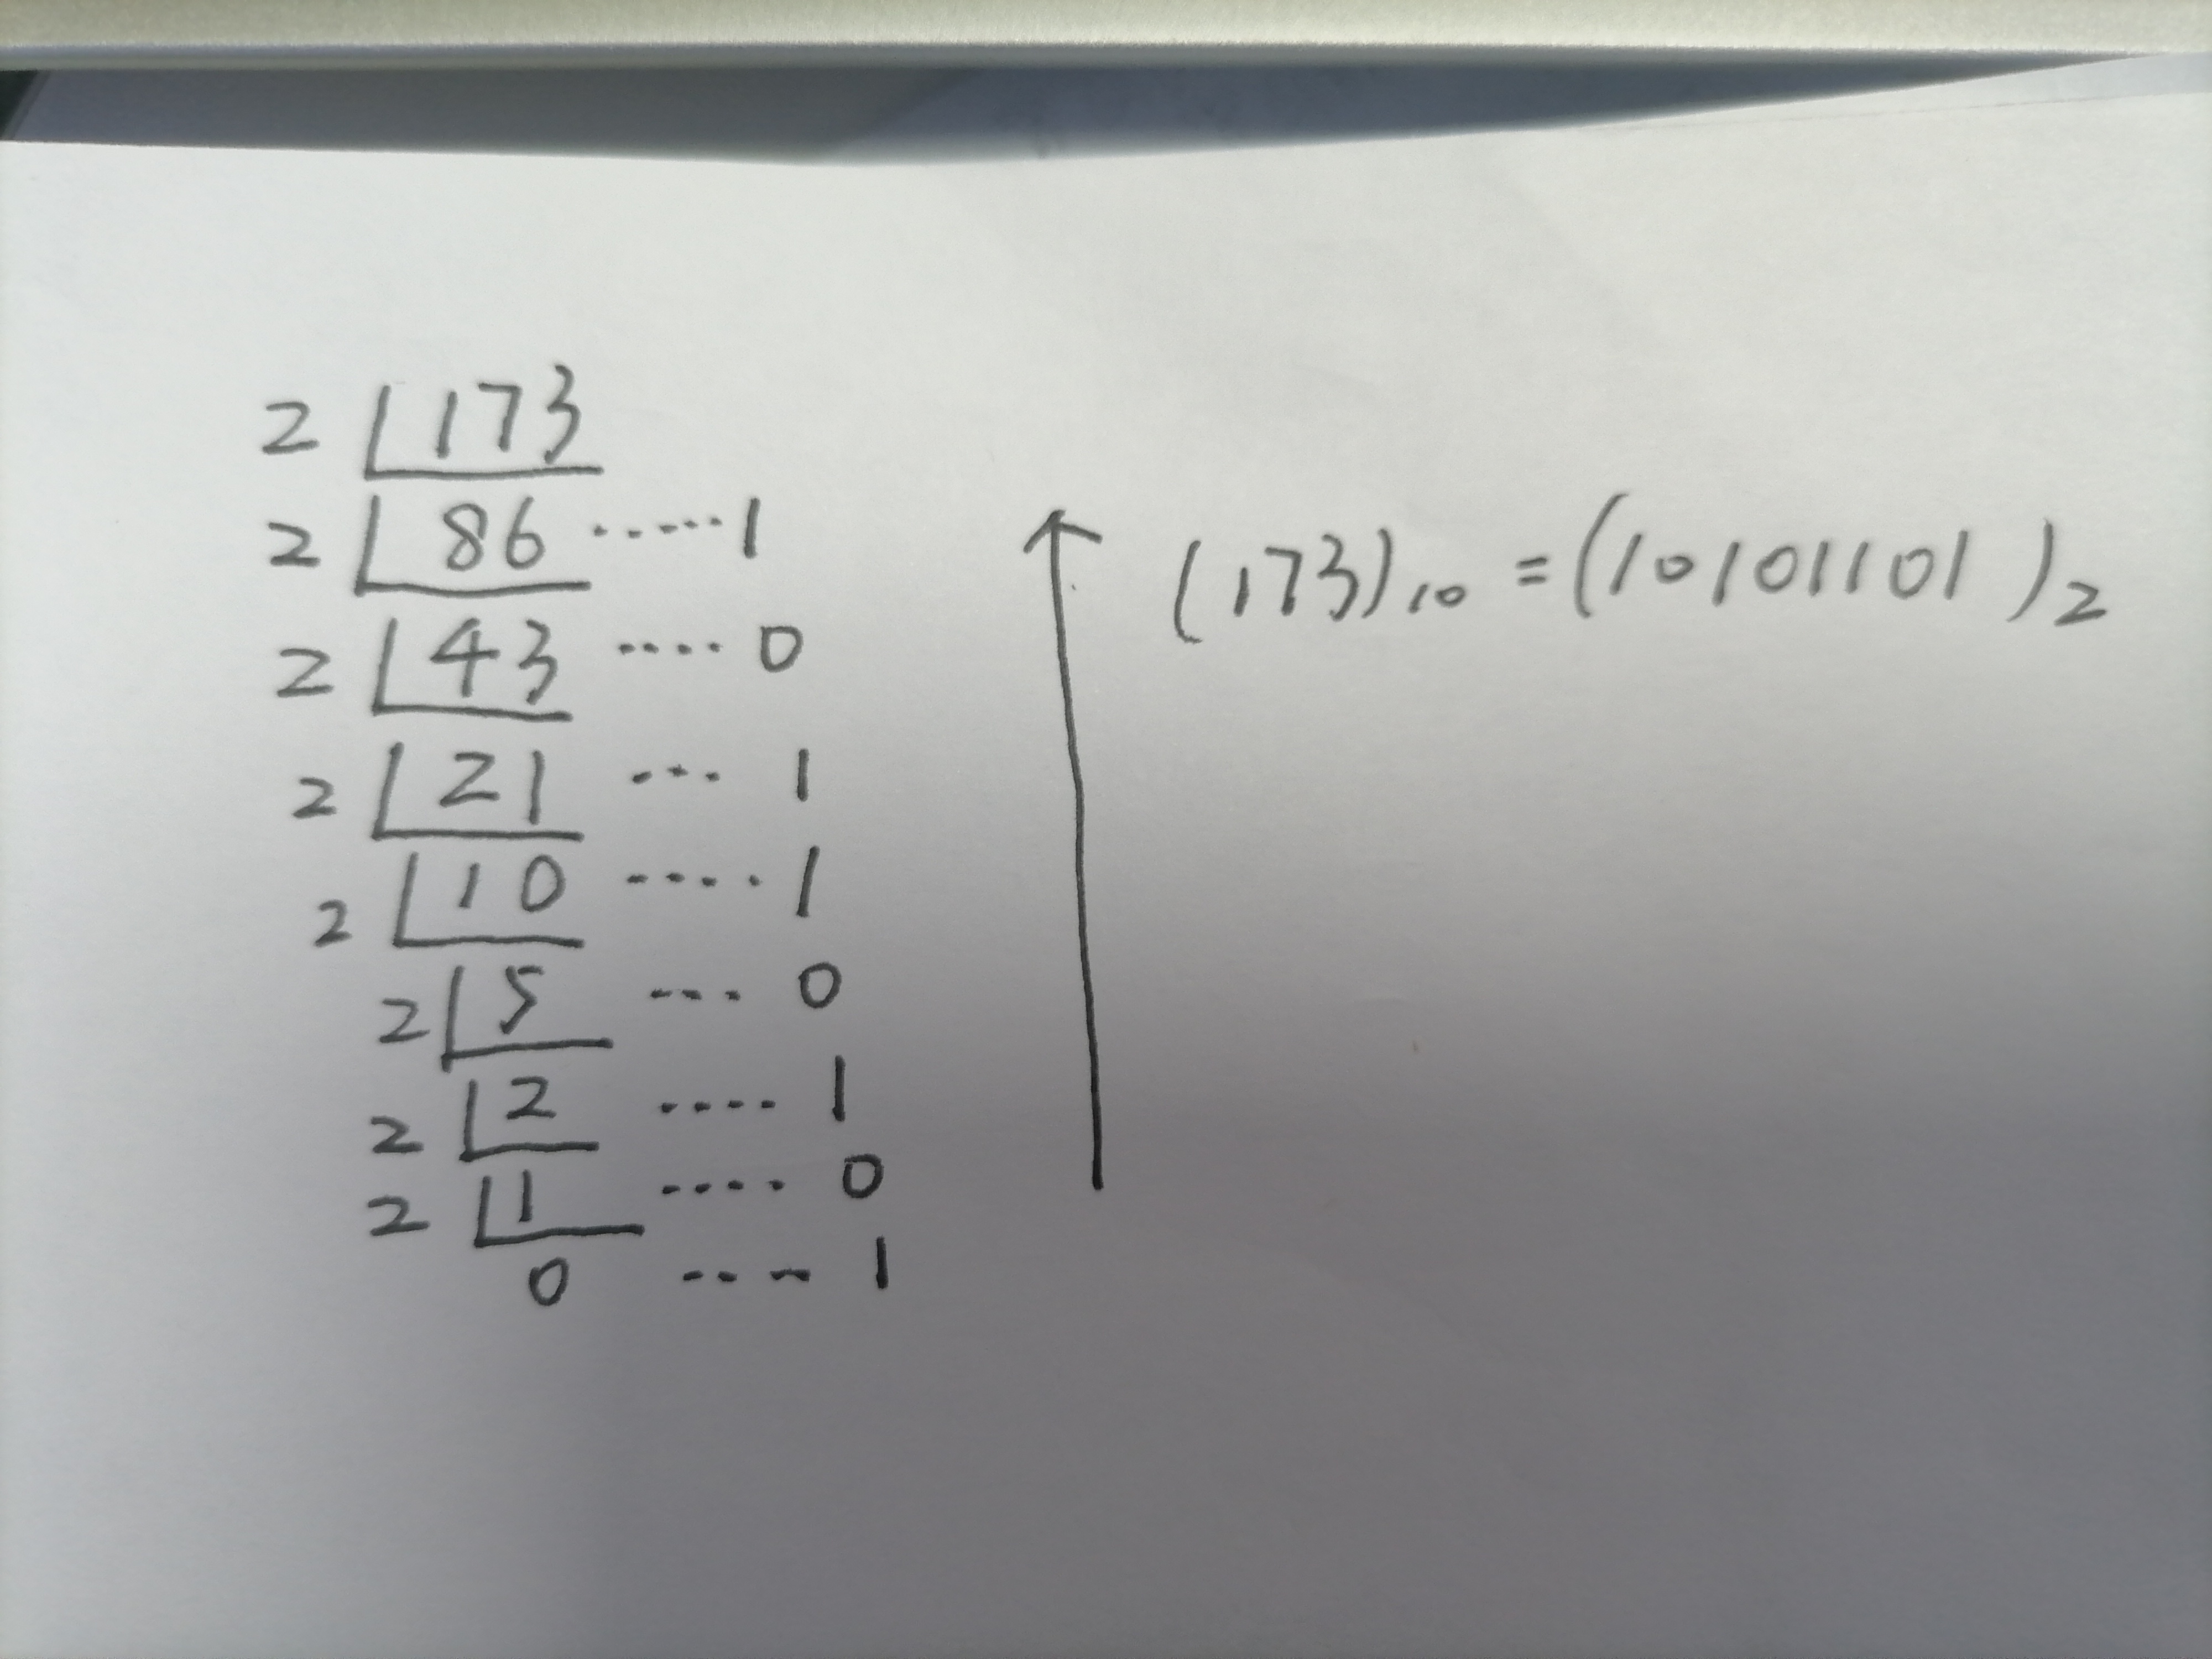 2 173
2 86 ......1
2 43 .... 0
2 21 ... 1
2 10 ....1
2 5 ... 0
2 2 .... 1
2 1 .... 0
0 .... 1
(173)₁₀ = (10101101)₂